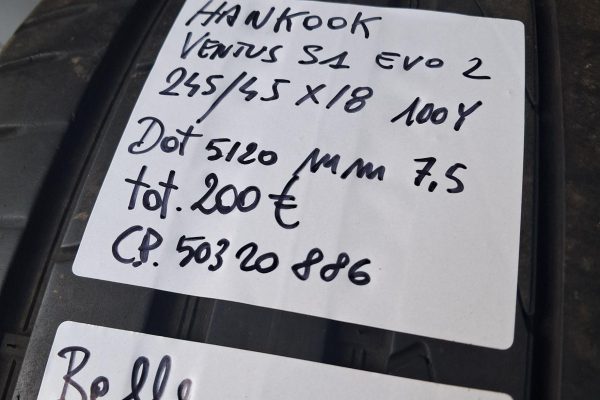 HANKOOK
VENTUS S1 EVO 2
245/45 X18 100Y
Dot 5120 mm 7,5
tot. 200 €
C.P. 50320886